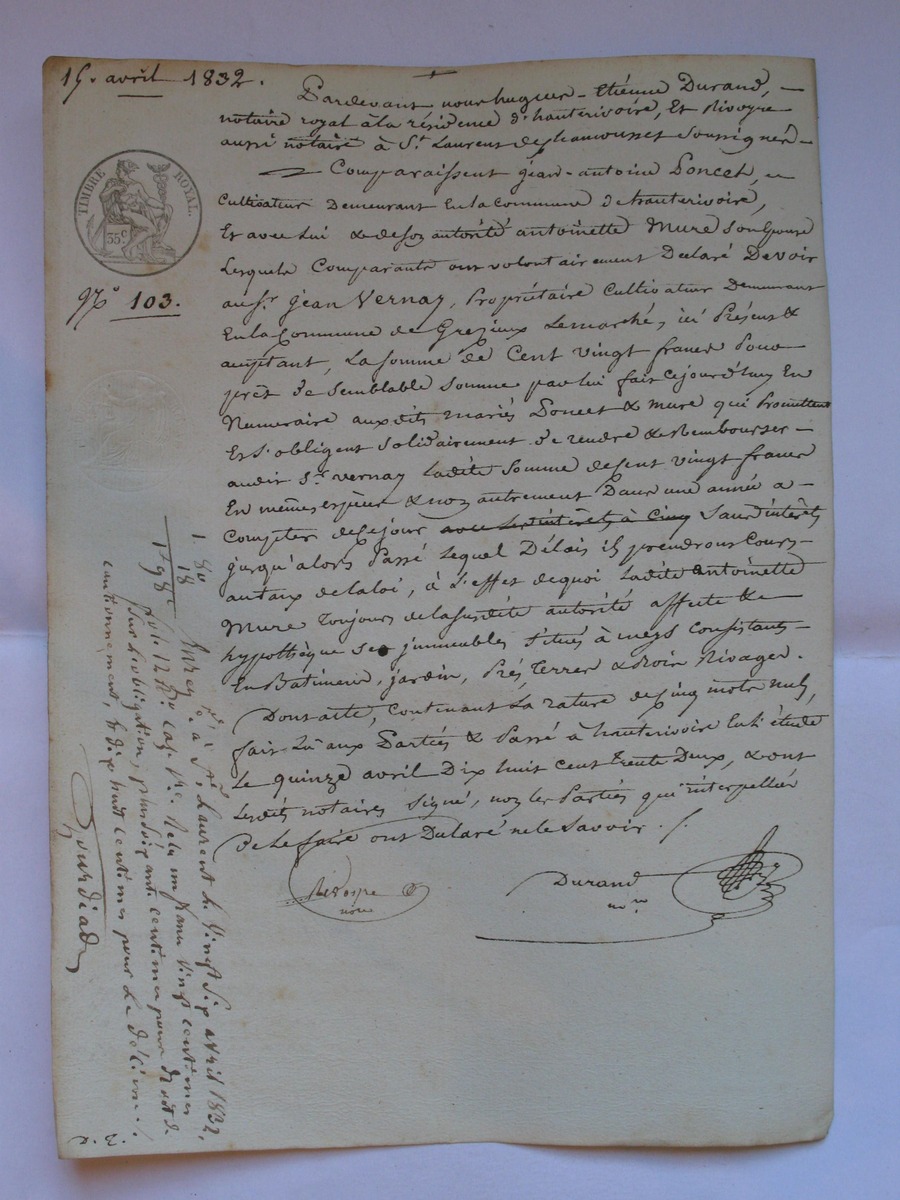 15. avril 1832.
TIMBRE ROYAL.
35 c
N.° 103.
Pardevant nous hugues-Etiénne Durand, —
notaire royal à la résidence d'hauterivoire, Et Rivoyre
aussi notaire à S.t Laurent de chamousset soussignés —
Comparaissent jean-antoine Poncet,
Cultivateur Demeurant En la Commune d'hauterivoire,
Et avec Lui & de son autorité antoinette Mure son Epouse
Lesquels Comparants ont volontairement Déclaré Devoir
au S.r jean Vernay, Propriétaire Cultivateur Demeurant
En la Commune de Grezieux Lemarché, ici Présent &
acceptant, La somme de Cent vingt francs Pour
prêt de semblable somme par lui fait cejourd'huy En
Numeraire auxdits mariés Poncet & Mure qui Promettent
Et s'obligent solidairement de rendre & Rembourser —
audit S.r vernay Ladite somme de Cent vingt francs
En mêmes espèces & non autrement Dans une année a —
Compter de ce jour avec les intérêts à cinq sans intérêts
jusqu'alors Passé Lequel Délais ils prendront Cours —
au taux de la loi, à L'effet de quoi Ladite Antoinette
Mure Toujours de la susdite autorité affecte &
hypothèque ses immeubles situés à meys Consistants —
En Batiments, jardin, Prés, Terres & Bois Rivages.
Dont acte, Contenant La rature de cinq mots nuls,
fait Lu aux Parties & Passé à hauterivoire En L'étude
Le quinze avril Dix huit cent trente Deux, & ont
Lesdits notaires signé, non les Parties qui interpellées
De le faire ont Déclaré ne le savoir.
Rivoyre
not.re
Durand
no.re
1. 80
18
1.f 98.c
Enreg.ré à S.t Laurent le vingt six avril 1832,
fol. 12 R.o cas. Reçu un franc vingt centimes
sur l'obligation, plus soixante centimes pour droit de
cautionnement, & dix huit centimes pour le décime.
Gourdiad